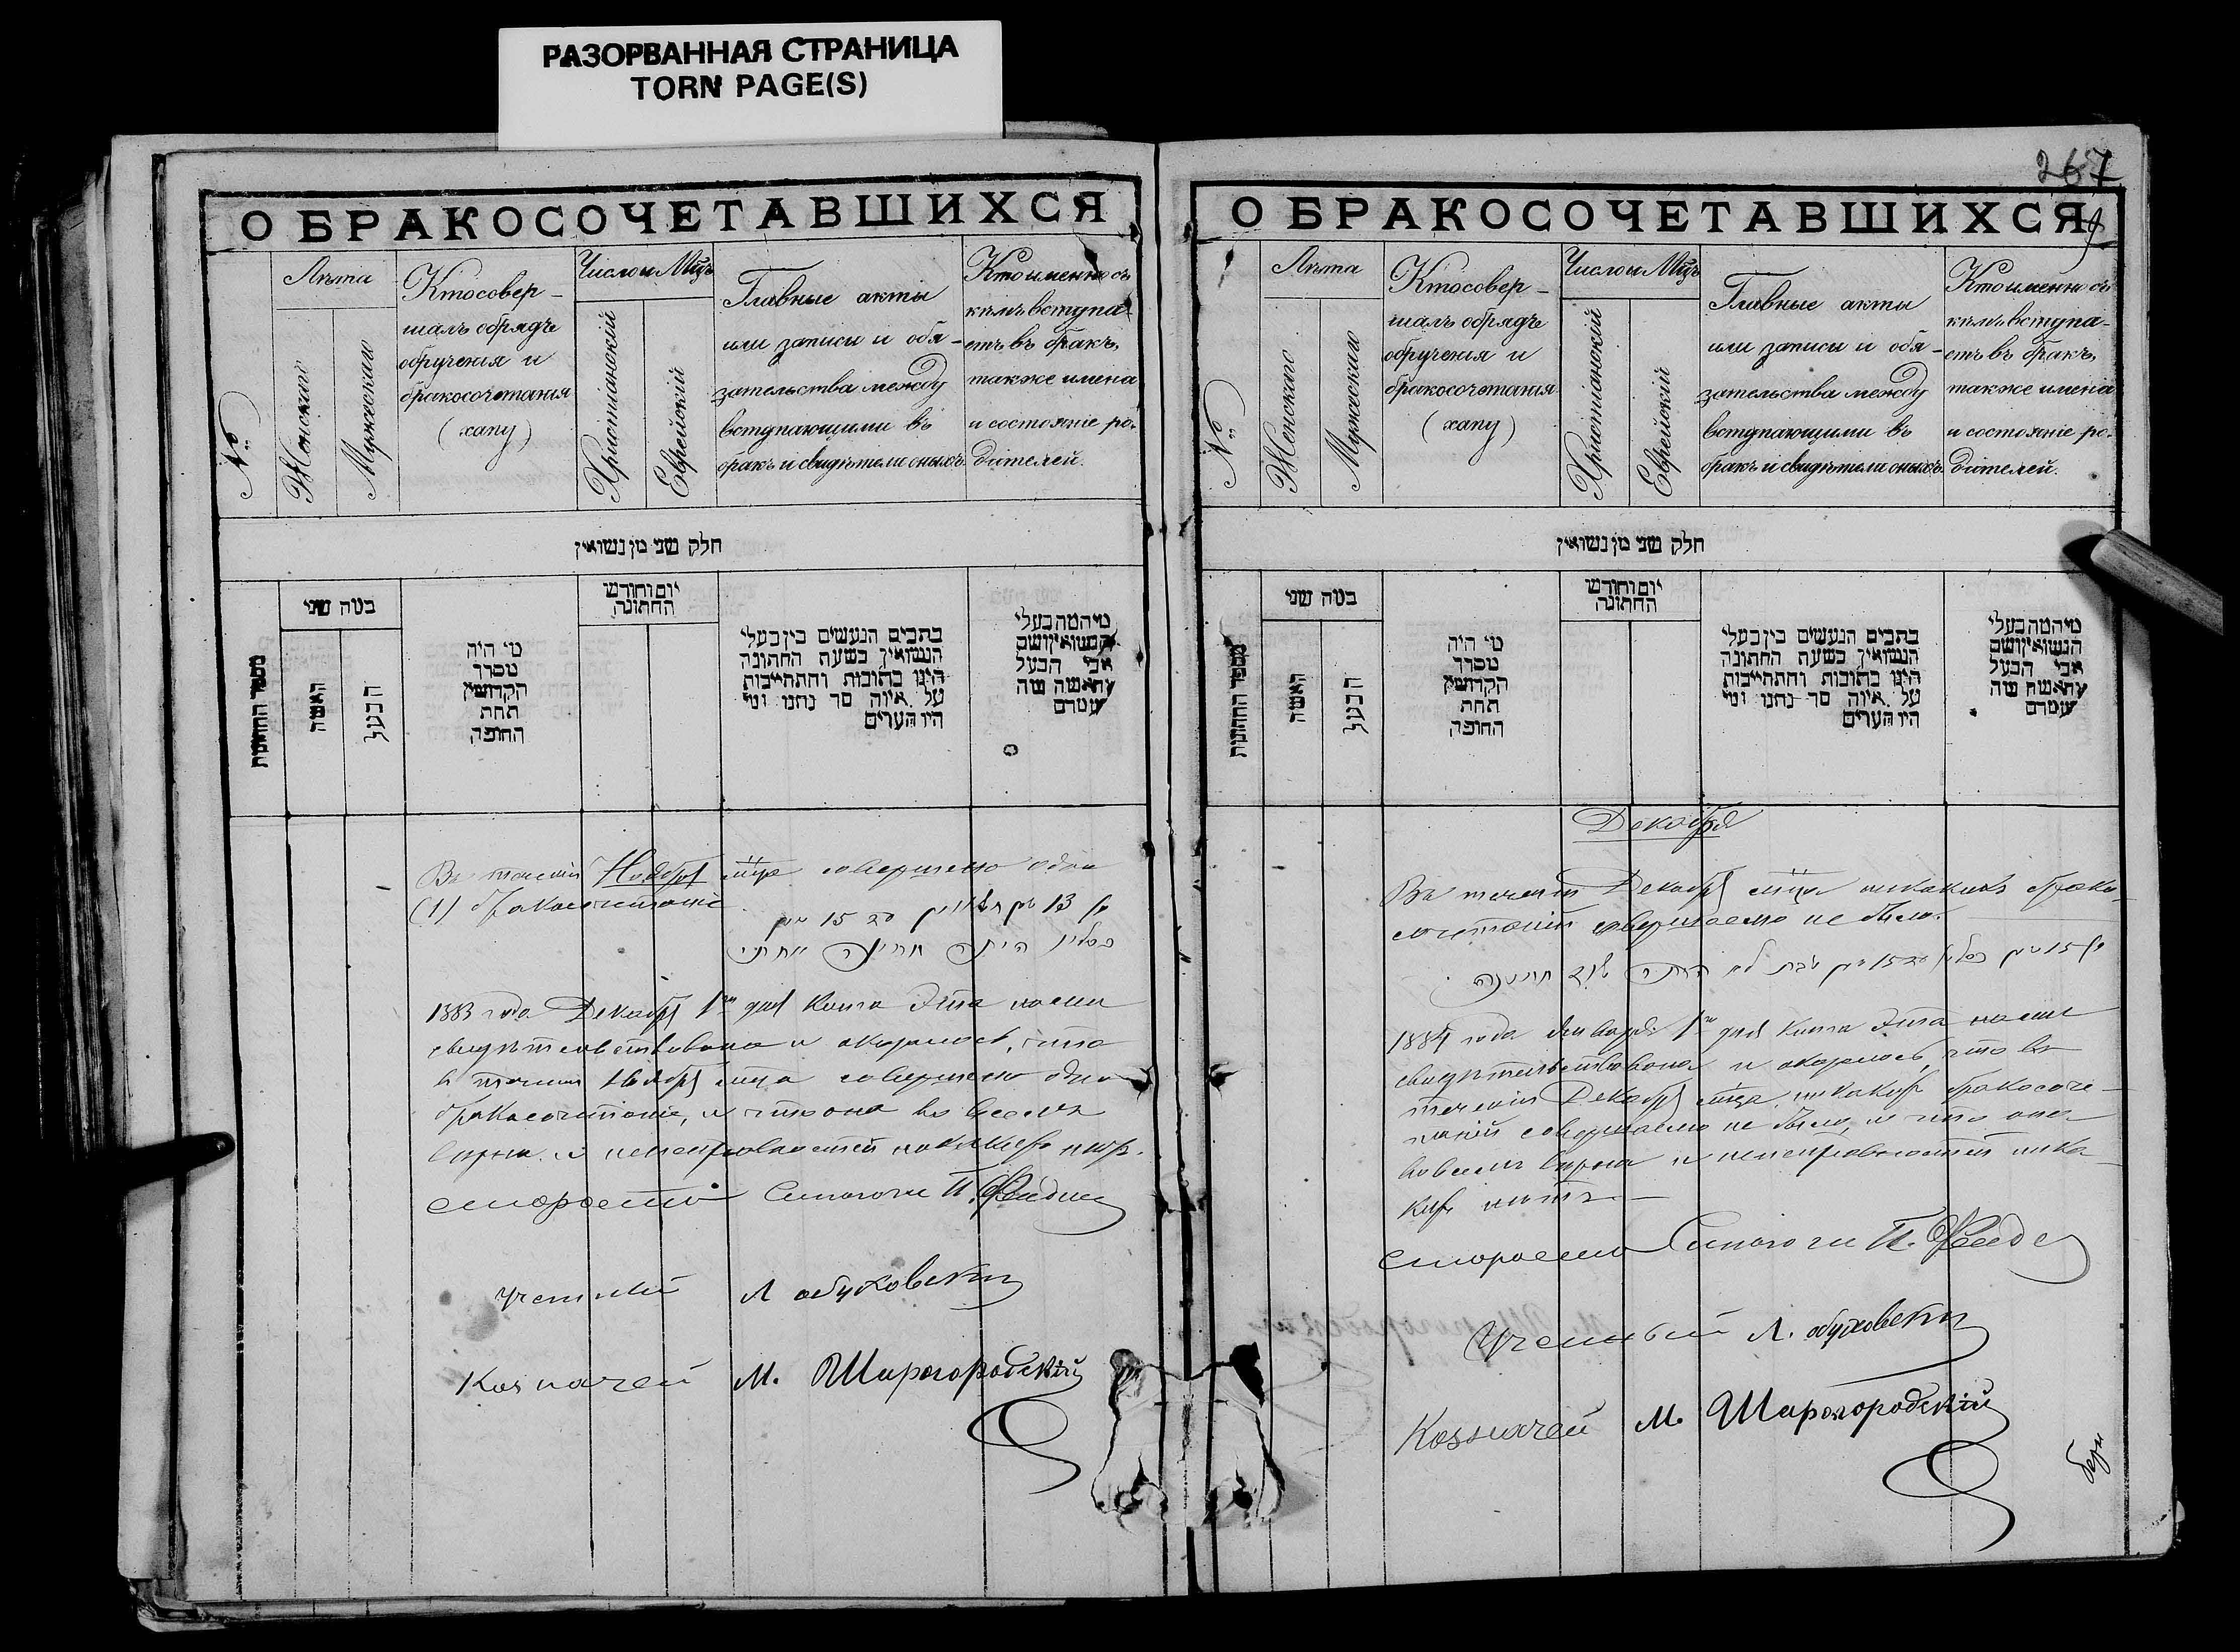 РАЗОРВАННАЯ СТРАНИЦА
TORN PAGE(S)
О БРАКОСОЧЕТАВШИХСЯ
№
Лѣта
Женскаго
Мужескаго
Кто совер-
шалъ обрядъ
обрученія и
бракосочетанія
(хапу)
Число и Мцъ
Христіанскій
Еврейскій
Главные акты
или записи и обя-
зательства между
вступающими въ
бракъ и свидѣтели оныхъ.
Кто именно съ
кѣмъ вступа-
етъ въ бракъ,
также имена
и состояніе ро-
дителей.
חלק שני מן נשואין
מספר החתונות
כמה שני
האשה
הבעל
מי היה
מסדר
הקדושין
תחת
החופה
יום וחודש
החתונה
כתבים הנעשים בין בעלי
הנשואין בשעת החתונה
היינו כתובות והתחייבות
על איזה סך נתנו ומי
היו העדים
מי המה בעלי
הנשואין ושם
אבי הבעל
והאשה מה
מעמדם
Въ теченіи Ноября мца совершено одно
(1) бракосочетаніе
13 15
כסליו היתה חתונה אחת
1883 года Декабря 1го дня Книга Эта нами
свидѣтельствована и оказалось, что
въ теченіи Ноября мца совершено одно
бракосочетаніе, и что она во всемъ
вѣрна и неисправностей никакихъ нѣтъ.
Староста Синагоги П.
Ученый Л Обуховскій
Казначей М. Шарогородскій
267
О БРАКОСОЧЕТАВШИХСЯ
№
Лѣта
Женскаго
Мужескаго
Кто совер-
шалъ обрядъ
обрученія и
бракосочетанія
(хапу)
Число и Мцъ
Христіанскій
Еврейскій
Главные акты
или записи и обя-
зательства между
вступающими въ
бракъ и свидѣтели оныхъ.
Кто именно съ
кѣмъ вступа-
етъ въ бракъ,
также имена
и состояніе ро-
дителей.
חלק שני מן נשואין
מספר החתונות
כמה שני
האשה
הבעל
מי היה
מסדר
הקדושין
תחת
החופה
יום וחודש
החתונה
כתבים הנעשים בין בעלי
הנשואין בשעת החתונה
היינו כתובות והתחייבות
על איזה סך נתנו ומי
היו העדים
מי המה בעלי
הנשואין ושם
אבי הבעל
והאשה מה
מעמדם
Декабря
Въ теченіи Декабря мца никакихъ брако-
сочетаній совершаемо не было.
15 כסליו 15 טבת לא היתה שום חתונה
1884 года Января 1го дня Книга Эта нами
свидѣтельствована и оказалось, что въ
теченіи Декабря мца никакихъ бракосоче-
таній совершаемо не было, и что она
во всемъ вѣрна и неисправностей ника-
кихъ нѣтъ
Староста Синагоги П.
Ученый Л. Обуховскій
Казначей М. Шарогородскій